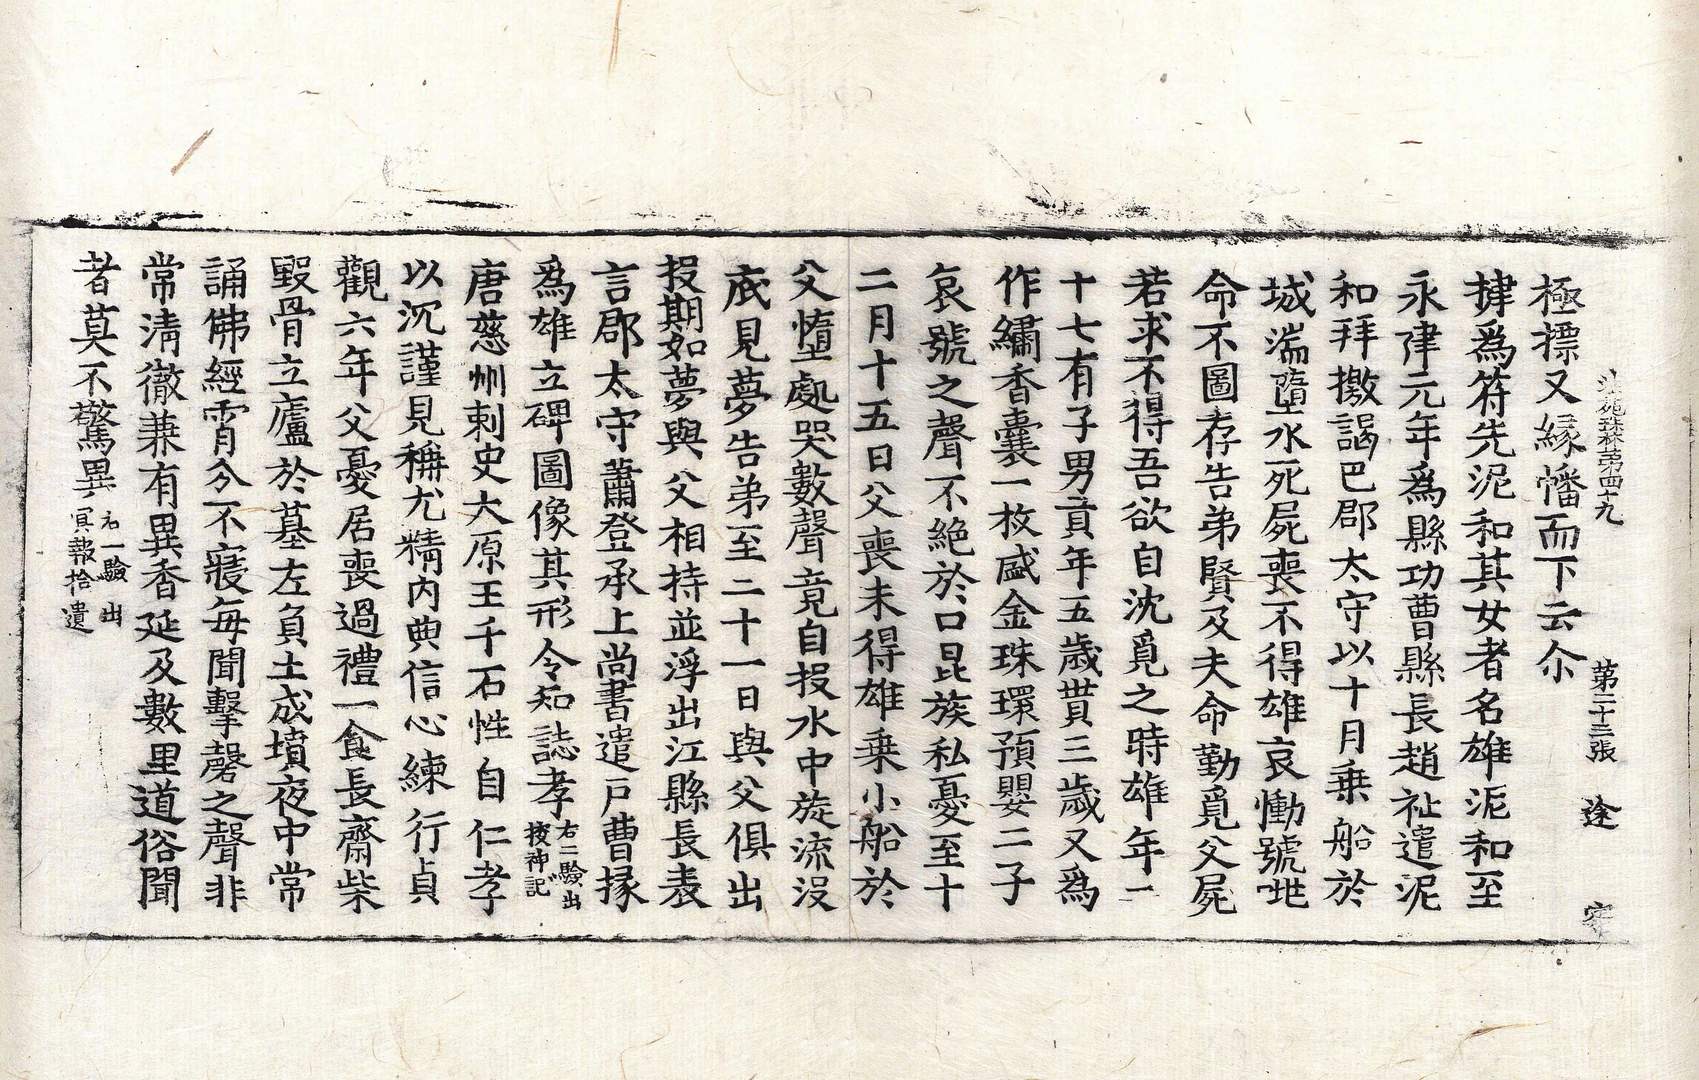 法苑珠林第四十九 第二十三張 途 宅
極摽又緣幡而下云尒
揵爲符先泥和其女者名雄泥和至
永建元年爲縣功曹縣長趙祉遣泥
和拜檄謁巴郡太守以十月乗船於
城湍墮水死屍喪不得雄哀慟號咷
命不圖存告弟賢及夫命勤覓父屍
若求不得吾欲自沈覓之時雄年二
十七有子男貢年五歲貰三歲又爲
作繡香囊一枚盛金珠環預嬰二子
哀號之聲不絶於口昆族私憂至十
二月十五日父喪未得雄乗小船於
父墮處哭數聲竟自投水中旋流没
底見夢告弟至二十一日與父俱出
投期如夢與父相持並浮出江縣長表
言郡太守蕭登承上尚書遣戶曹掾
爲雄立碑圖像其形令知誌孝右二驗出
按神記
唐慈州刺史大原王千石性自仁孝
以沉謹見稱尤精内典信心練行貞
觀六年父憂居喪過禮一食長齋柴
毀骨立廬於墓左負土成墳夜中常
誦佛經宵分不寢每聞擊磬之聲非
常清徹兼有異香延及數里道俗聞
者莫不驚異右一驗出
冥報拾遺